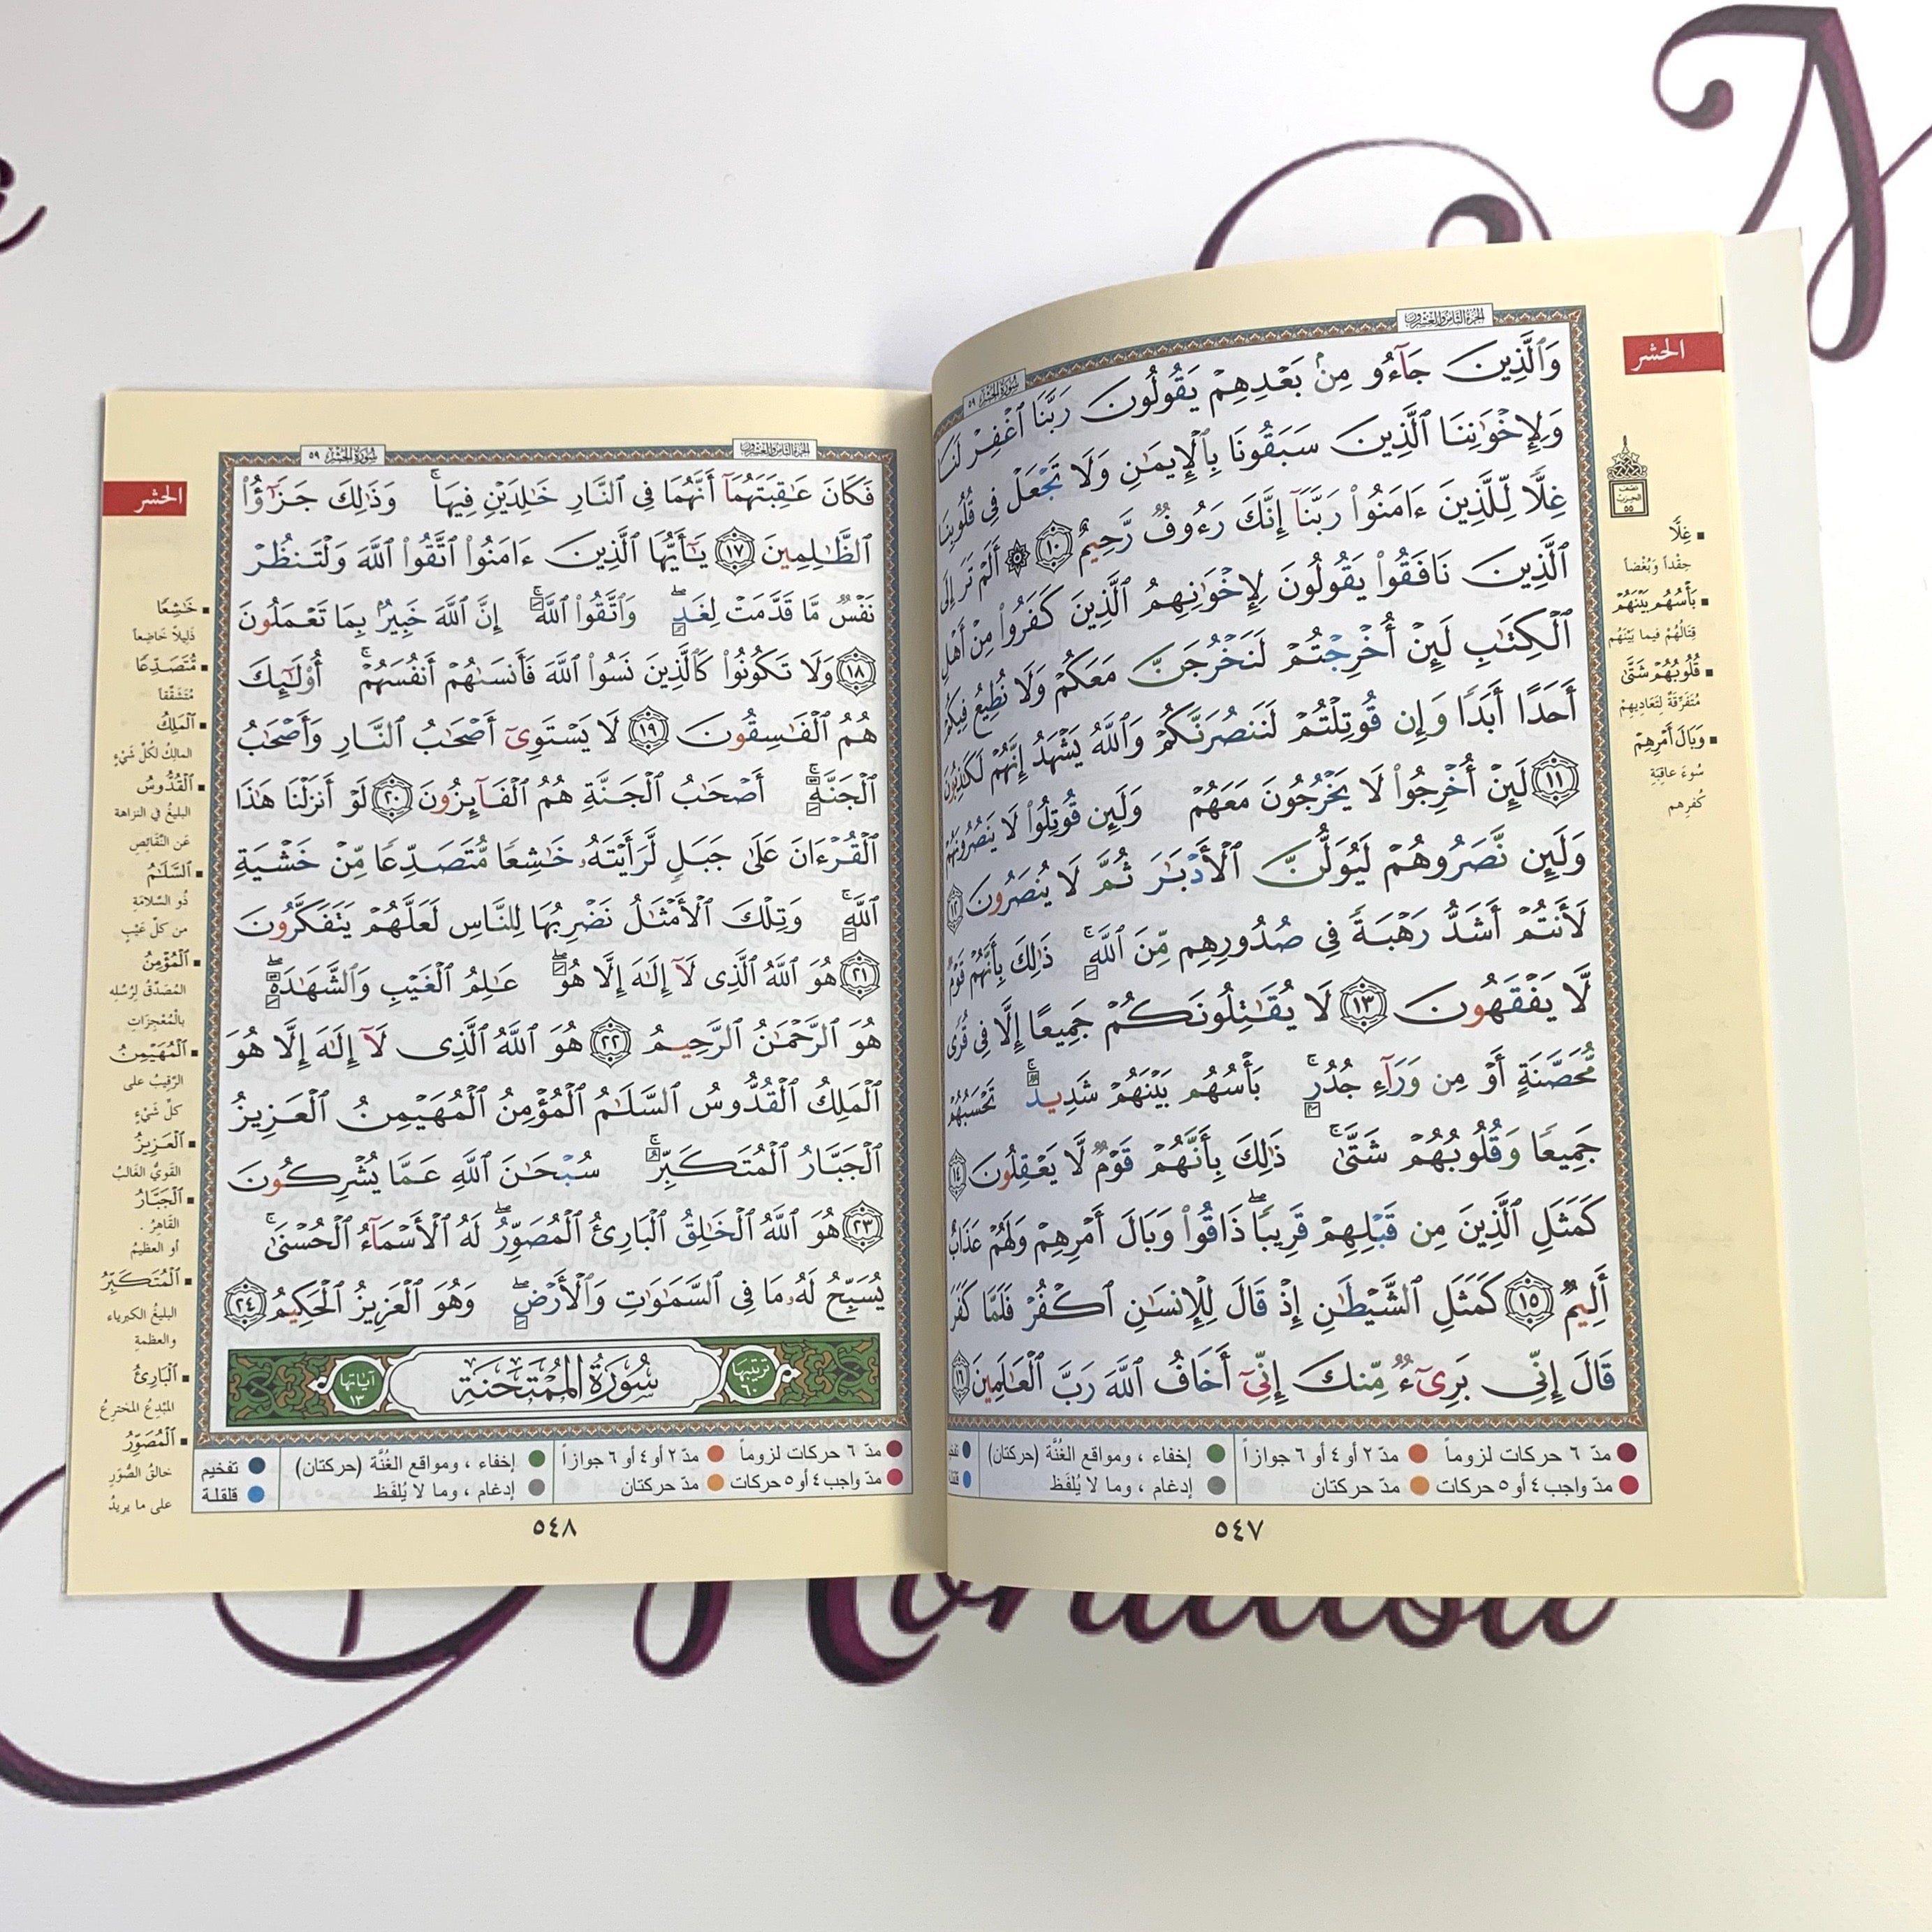 الجزء الثامن والعشرون
سورة الحشر ٥٩
الحشر
وَٱلَّذِينَ جَآءُو مِنۢ بَعْدِهِمْ يَقُولُونَ رَبَّنَا ٱغْفِرْ لَنَا
وَلِإِخْوَٰنِنَا ٱلَّذِينَ سَبَقُونَا بِٱلْإِيمَٰنِ وَلَا تَجْعَلْ فِى قُلُوبِنَا
غِلًّا لِّلَّذِينَ ءَامَنُوا۟ رَبَّنَآ إِنَّكَ رَءُوفٌ رَّحِيمٌ ١٠ ۞ أَلَمْ تَرَ إِلَى
ٱلَّذِينَ نَافَقُوا۟ يَقُولُونَ لِإِخْوَٰنِهِمُ ٱلَّذِينَ كَفَرُوا۟ مِنْ أَهْلِ
ٱلْكِتَٰبِ لَئِنْ أُخْرِجْتُمْ لَنَخْرُجَنَّ مَعَكُمْ وَلَا نُطِيعُ فِيكُمْ
أَحَدًا أَبَدًا وَإِن قُوتِلْتُمْ لَنَنصُرَنَّكُمْ وَٱللَّهُ يَشْهَدُ إِنَّهُمْ لَكَٰذِبُونَ
١١ لَئِنْ أُخْرِجُوا۟ لَا يَخْرُجُونَ مَعَهُمْ وَلَئِن قُوتِلُوا۟ لَا يَنصُرُونَهُمْ
وَلَئِن نَّصَرُوهُمْ لَيُوَلُّنَّ ٱلْأَدْبَٰرَ ثُمَّ لَا يُنصَرُونَ ١٢
لَأَنتُمْ أَشَدُّ رَهْبَةً فِى صُدُورِهِم مِّنَ ٱللَّهِ ۚ ذَٰلِكَ بِأَنَّهُمْ قَوْمٌ
لَّا يَفْقَهُونَ ١٣ لَا يُقَٰتِلُونَكُمْ جَمِيعًا إِلَّا فِى قُرًى
مُّحَصَّنَةٍ أَوْ مِن وَرَآءِ جُدُرٍۭ ۚ بَأْسُهُم بَيْنَهُمْ شَدِيدٌ ۚ تَحْسَبُهُمْ
جَمِيعًا وَقُلُوبُهُمْ شَتَّىٰ ۚ ذَٰلِكَ بِأَنَّهُمْ قَوْمٌ لَّا يَعْقِلُونَ ١٤
كَمَثَلِ ٱلَّذِينَ مِن قَبْلِهِمْ قَرِيبًا ۖ ذَاقُوا۟ وَبَالَ أَمْرِهِمْ وَلَهُمْ عَذَابٌ
أَلِيمٌ ١٥ كَمَثَلِ ٱلشَّيْطَٰنِ إِذْ قَالَ لِلْإِنسَٰنِ ٱكْفُرْ فَلَمَّا كَفَرَ
قَالَ إِنِّى بَرِىٓءٌ مِّنكَ إِنِّىٓ أَخَافُ ٱللَّهَ رَبَّ ٱلْعَٰلَمِينَ ١٦
نصف
الحزب
٥٥
غِلًّا
حِقْداً وَبُغْضاً
بَأْسُهُم بَيْنَهُمْ
قِتَالُهُمْ فيما بَيْنَهُم
قُلُوبُهُمْ شَتَّىٰ
مُتَفَرِّقَةٌ لِتَعَادِيهِمْ
وَبَالَ أَمْرِهِمْ
سُوءَ عاقِبَةِ
كُفرِهِم
مدّ ٦ حركات لزوماً مدّ ٢ أو ٤ أو ٦ جوازاً إخفاء ، ومواقع الغُنَّة (حركتان)
مدّ واجب ٤ أو ٥ حركات مدّ حركتان إدغام ، وما لا يُلفَظ
٥٤٧
الجزء الثامن والعشرون
سورة الحشر ٥٩
الحشر
فَكَانَ عَٰقِبَتَهُمَآ أَنَّهُمَا فِى ٱلنَّارِ خَٰلِدَيْنِ فِيهَا ۚ وَذَٰلِكَ جَزَٰٓؤُا۟
ٱلظَّٰلِمِينَ ١٧ يَٰٓأَيُّهَا ٱلَّذِينَ ءَامَنُوا۟ ٱتَّقُوا۟ ٱللَّهَ وَلْتَنظُرْ
نَفْسٌ مَّا قَدَّمَتْ لِغَدٍ ۖ وَٱتَّقُوا۟ ٱللَّهَ ۚ إِنَّ ٱللَّهَ خَبِيرٌۢ بِمَا تَعْمَلُونَ
١٨ وَلَا تَكُونُوا۟ كَٱلَّذِينَ نَسُوا۟ ٱللَّهَ فَأَنسَىٰهُمْ أَنفُسَهُمْ ۚ أُو۟لَٰٓئِكَ
هُمُ ٱلْفَٰسِقُونَ ١٩ لَا يَسْتَوِىٓ أَصْحَٰبُ ٱلنَّارِ وَأَصْحَٰبُ
ٱلْجَنَّةِ ۚ أَصْحَٰبُ ٱلْجَنَّةِ هُمُ ٱلْفَآئِزُونَ ٢٠ لَوْ أَنزَلْنَا هَٰذَا
ٱلْقُرْءَانَ عَلَىٰ جَبَلٍ لَّرَأَيْتَهُۥ خَٰشِعًا مُّتَصَدِّعًا مِّنْ خَشْيَةِ
ٱللَّهِ ۚ وَتِلْكَ ٱلْأَمْثَٰلُ نَضْرِبُهَا لِلنَّاسِ لَعَلَّهُمْ يَتَفَكَّرُونَ
٢١ هُوَ ٱللَّهُ ٱلَّذِى لَآ إِلَٰهَ إِلَّا هُوَ ۖ عَٰلِمُ ٱلْغَيْبِ وَٱلشَّهَٰدَةِ ۖ
هُوَ ٱلرَّحْمَٰنُ ٱلرَّحِيمُ ٢٢ هُوَ ٱللَّهُ ٱلَّذِى لَآ إِلَٰهَ إِلَّا هُوَ
ٱلْمَلِكُ ٱلْقُدُّوسُ ٱلسَّلَٰمُ ٱلْمُؤْمِنُ ٱلْمُهَيْمِنُ ٱلْعَزِيزُ
ٱلْجَبَّارُ ٱلْمُتَكَبِّرُ ۚ سُبْحَٰنَ ٱللَّهِ عَمَّا يُشْرِكُونَ
٢٣ هُوَ ٱللَّهُ ٱلْخَٰلِقُ ٱلْبَارِئُ ٱلْمُصَوِّرُ ۖ لَهُ ٱلْأَسْمَآءُ ٱلْحُسْنَىٰ ۚ
يُسَبِّحُ لَهُۥ مَا فِى ٱلسَّمَٰوَٰتِ وَٱلْأَرْضِ ۖ وَهُوَ ٱلْعَزِيزُ ٱلْحَكِيمُ ٢٤
ترتيبها ٦٠ سُورَةُ المُمْتَحنَةِ آياتها ١٣
خَٰشِعًا
ذَليلاً خَاضِعاً
مُّتَصَدِّعًا
مُتَشَقِّقاً
ٱلْمَلِكُ
المالِكُ لكُلِّ شَيْءٍ
ٱلْقُدُّوسُ
البليغُ في النزاهة
عَن النَّقَائِصِ
ٱلسَّلَٰمُ
ذُو السَّلامَةِ
من كلِّ عَيْبٍ
ٱلْمُؤْمِنُ
المُصَدِّقُ لِرُسُلِه
بالْمُعْجِزَاتِ
ٱلْمُهَيْمِنُ
الرَّقيبُ على
كلِّ شَيْءٍ
ٱلْعَزِيزُ
القَويُّ الغَالبُ
ٱلْجَبَّارُ
القَاهِرُ .
أو العظيمُ
ٱلْمُتَكَبِّرُ
البليغُ الكبرياء
والعظمةِ
ٱلْبَارِئُ
المُبْدِعُ المخترِعُ
ٱلْمُصَوِّرُ
خالقُ الصُّوَرِ
على ما يريدُ
مدّ ٦ حركات لزوماً مدّ ٢ أو ٤ أو ٦ جوازاً إخفاء ، ومواقع الغُنَّة (حركتان) تفخيم
مدّ واجب ٤ أو ٥ حركات مدّ حركتان إدغام ، وما لا يُلفَظ قلقلة
٥٤٨